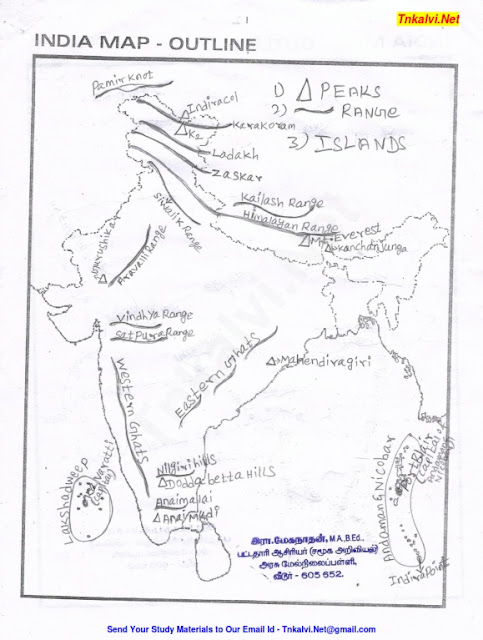 Tnkalvi.Net
1
INDIA MAP - OUTLINE
Pamir knot
1) △ PEAKS
2) RANGE
3) ISLANDS
Indiracol
K2
Karakoram
Ladakh
Zaskar
Kailash Range
Himalayan Range
Siwalik Range
Mt. Everest
Kanchanjunga
Gurushikar
Aravalli Range
Vindhya Range
Satpura Range
Western Ghats
Eastern Ghats
Mahendiragiri
Nilgiri hills
Doddabetta Hills
Anaimalai
Anaymudi
Lakshadweep
Kavarati
Andaman & Nicobar
Port Blair
Capital
Indira Point
அரா. மேகநாதன், M.A.,B.Ed.,
பட்டதாரி ஆசிரியர் (சமூக அறிவியல்)
அரசு மேல்நிலைப்பள்ளி,
வீடூர் - 605 652.
Send Your Study Materials to Our Email Id - Tnkalvi.Net@gmail.com